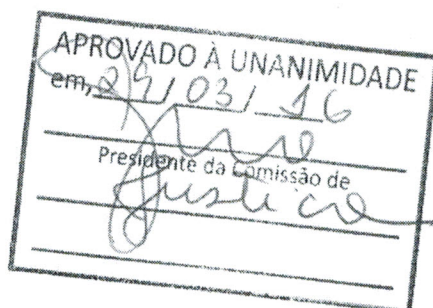 APROVADO À UNANIMIDADE
em, 29/03/16
Presidente da Comissão de
Justica